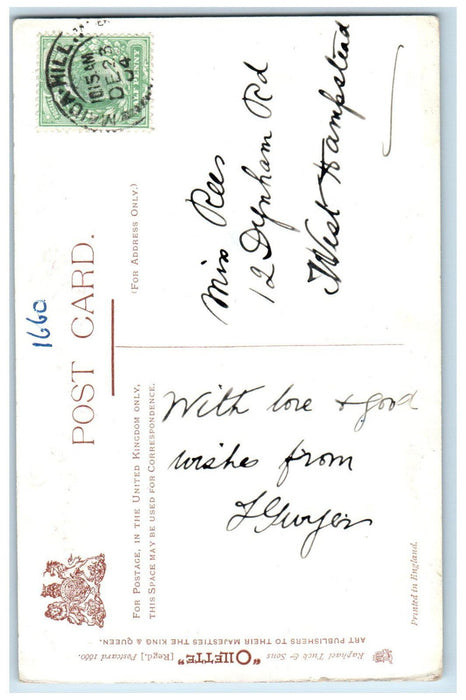 POST CARD.
(FOR ADDRESS ONLY.)
FOR POSTAGE, IN THE UNITED KINGDOM ONLY,
THIS SPACE MAY BE USED FOR CORRESPONDENCE.
1660
MAIDA HILL.
10.15 AM
DE 23
04
HALFPENNY
Miss Rees
12 Dynham Rd
West Hampstead
With love & good
wishes from
Raphael Tuck & Sons "OILETTE" [Regd.] Postcard 1660.
ART PUBLISHERS TO THEIR MAJESTIES THE KING & QUEEN.
Printed in England.